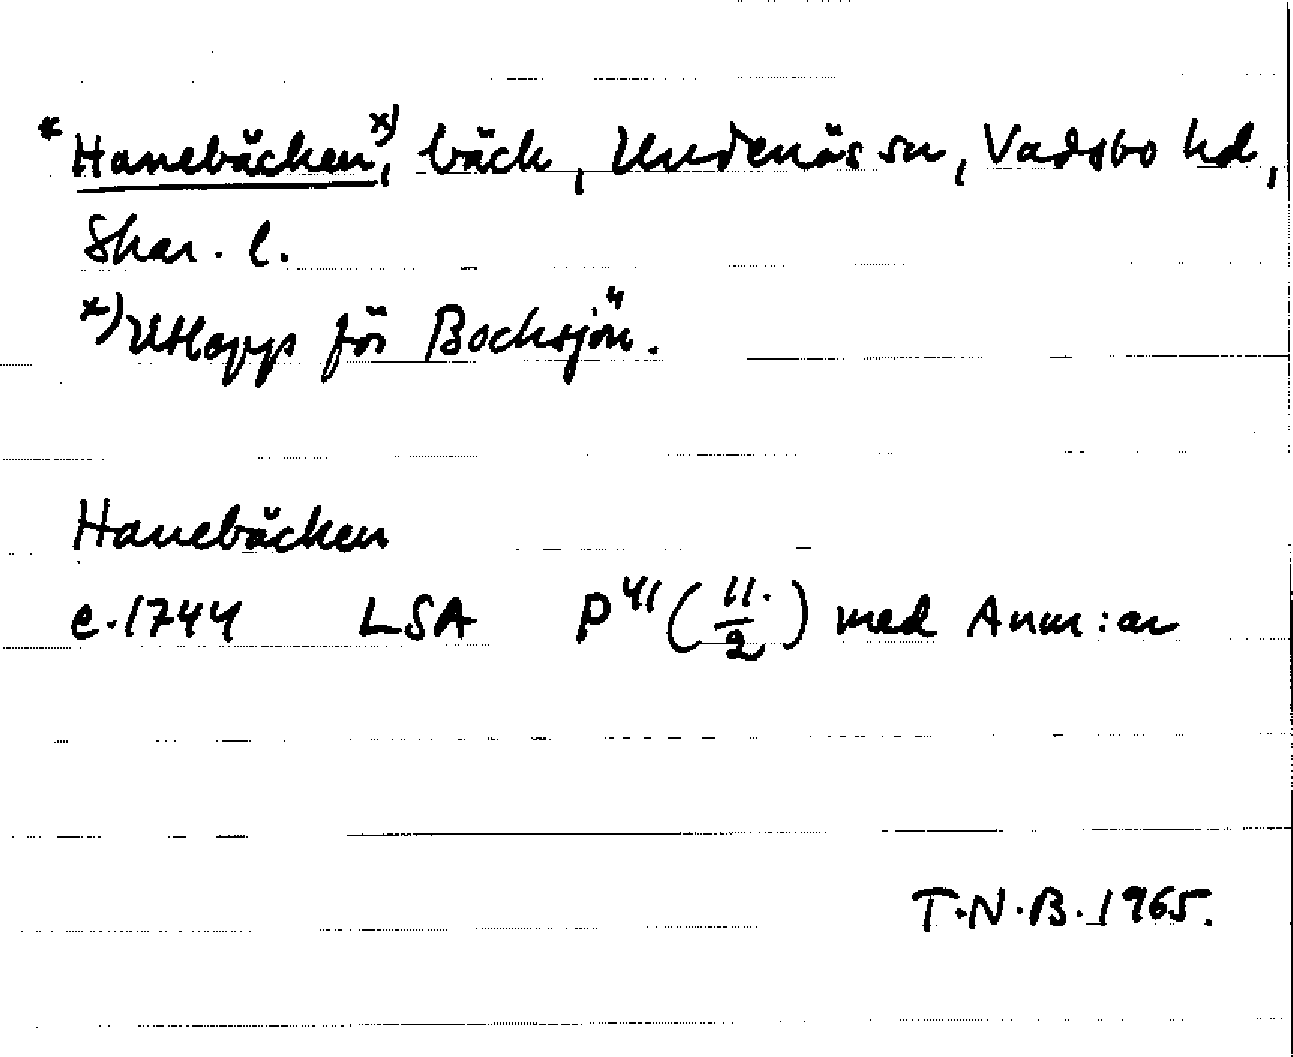 * Hanebäcken x), bäck, Undenäs sn, Vadsbo hd,
Skar. l.
x) Utlopp för Bocksjön.
Hanebäcken
c. 1744 LSA P 41 (11./2) med Anm:ar
T.N.B. 1965.